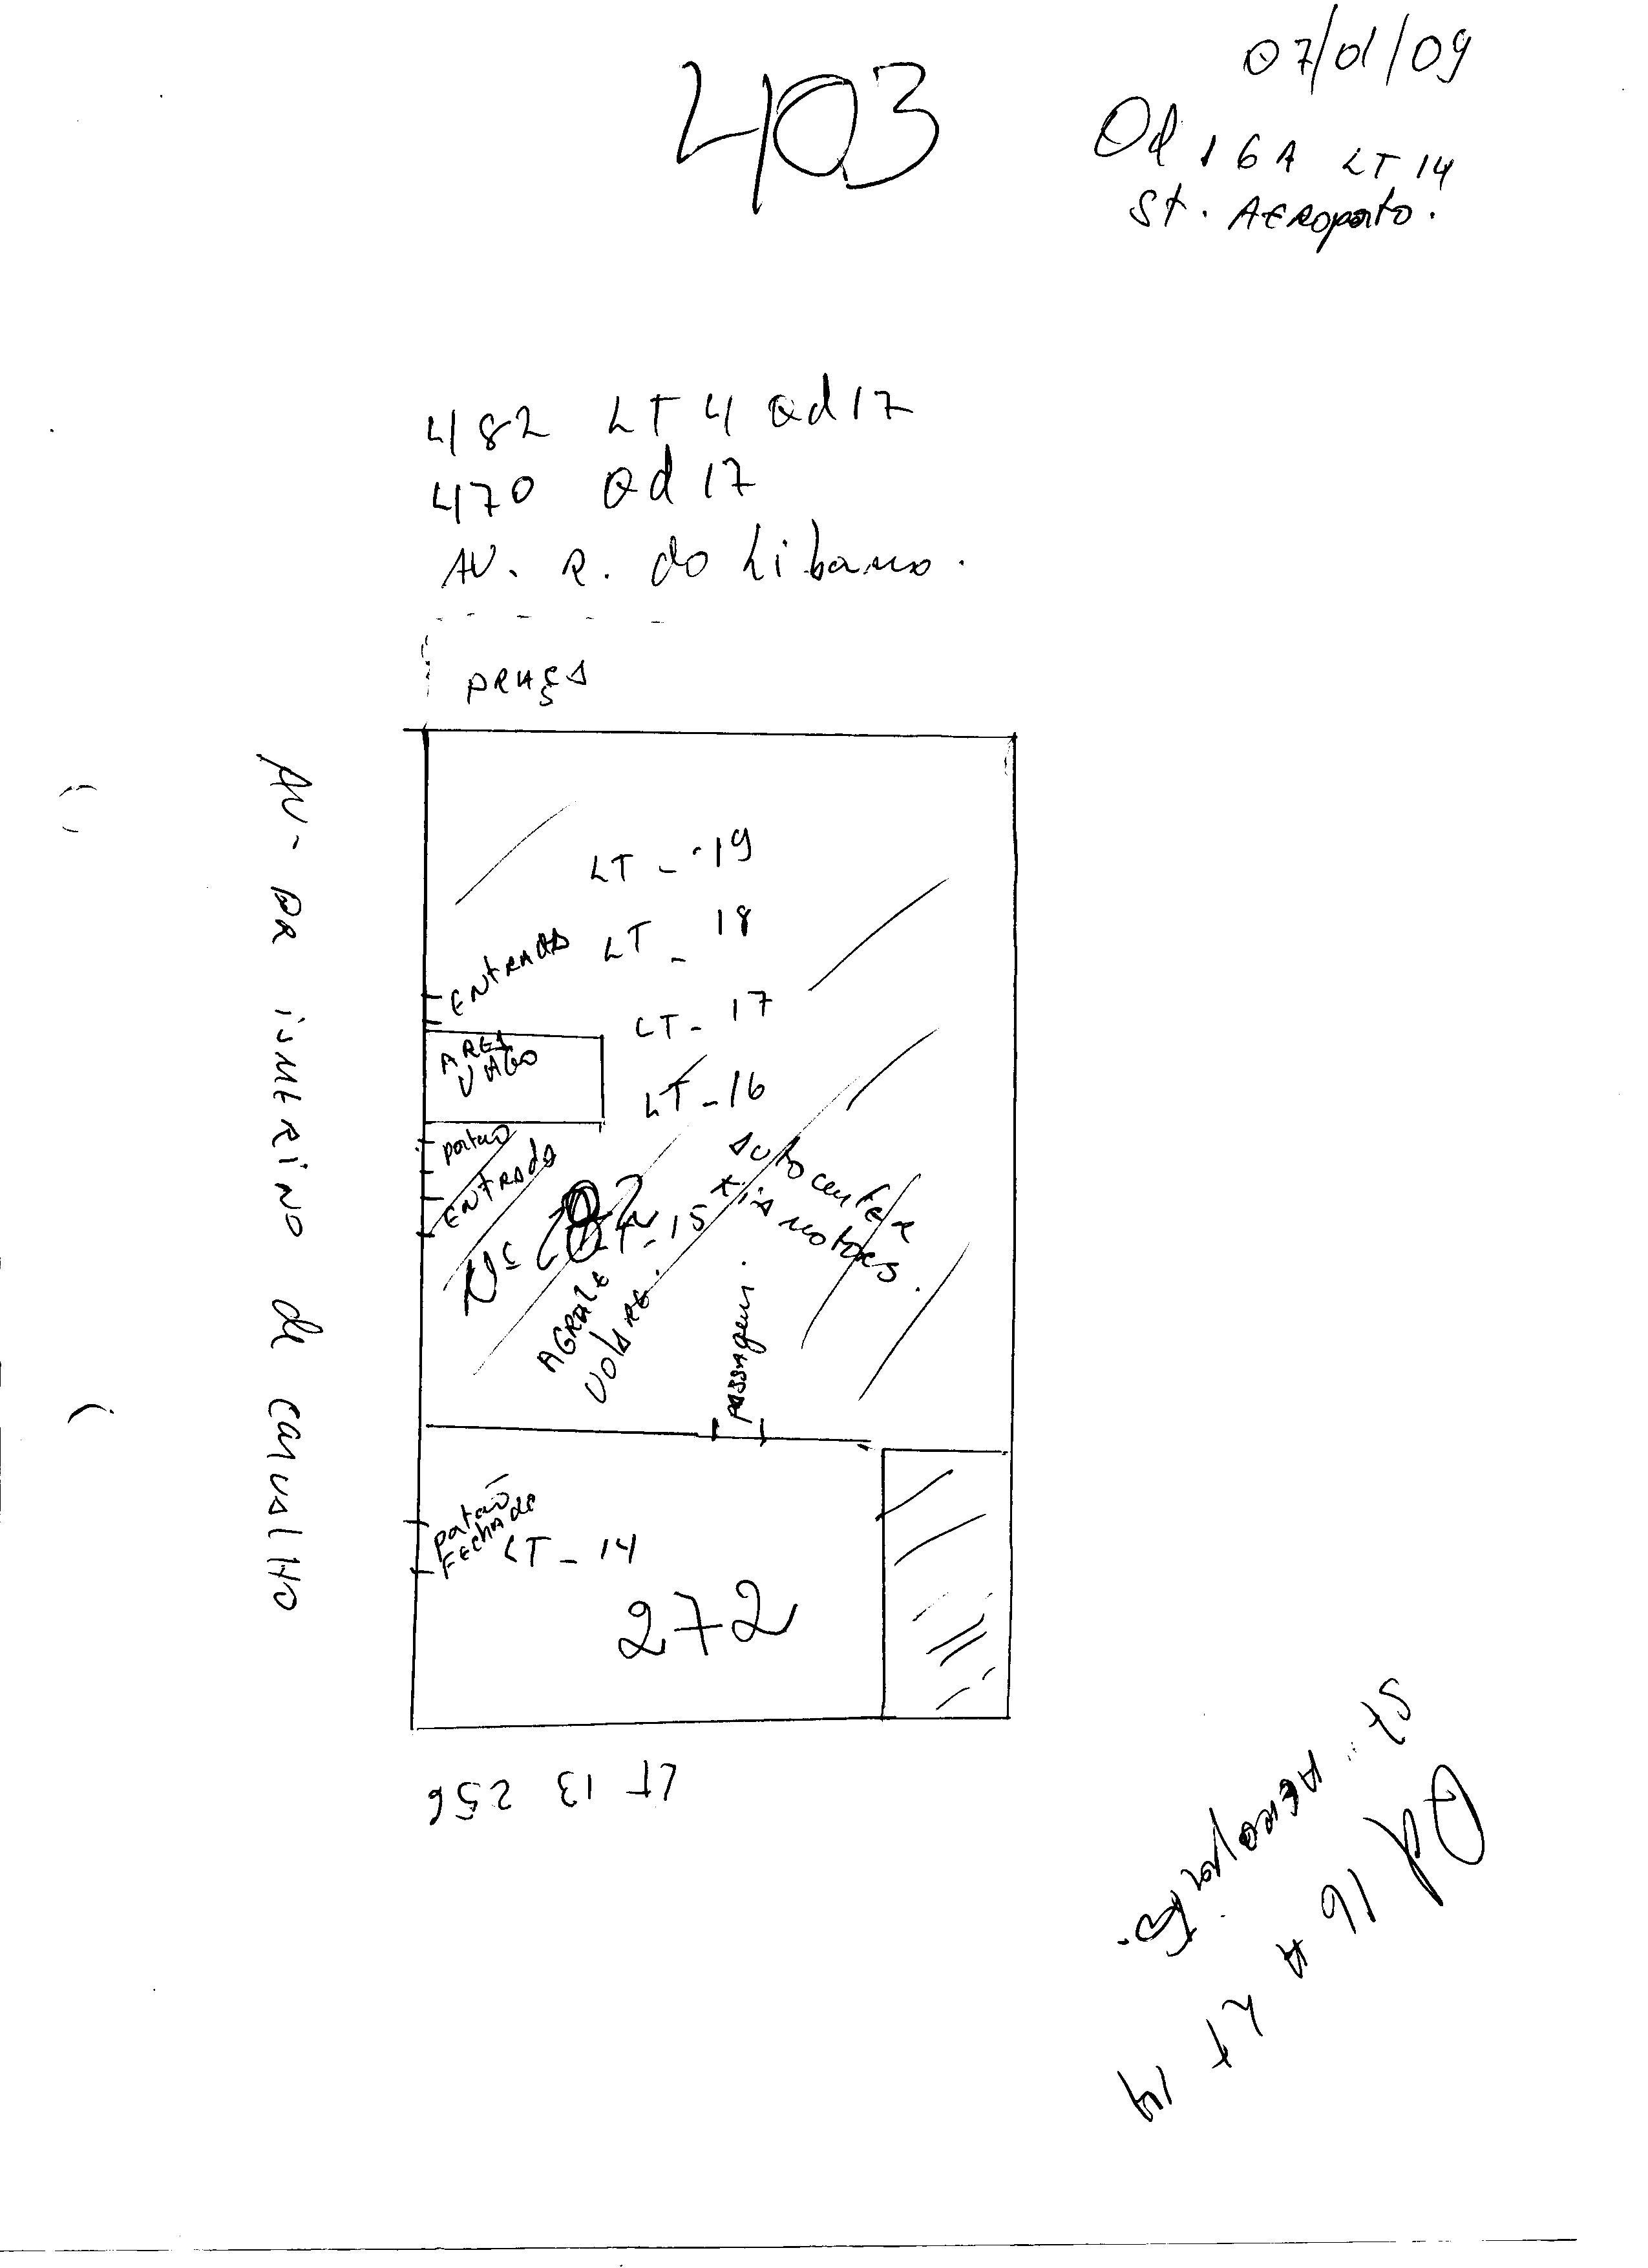 403
07/01/09
Qd 16A LT 14
St. AEROporto.
482 LT 4 Qd 17
470 Qd 17
AV. R. do Libano.
PRAÇA
AV- DR ismERINO de CARVALHO
LT - 19
ENTRADA LT - 18
LT - 17
AREA
VAGO
LT - 16
portão
ENTRADA
Auto center
Kia motors.
Nº 282
LT - 15
AGRALE
VOLARE.
PASSAgem.
portão
FECHADO
LT - 14
272
LT 13 256
St. AEROporto.
Qd 16 A LT 14